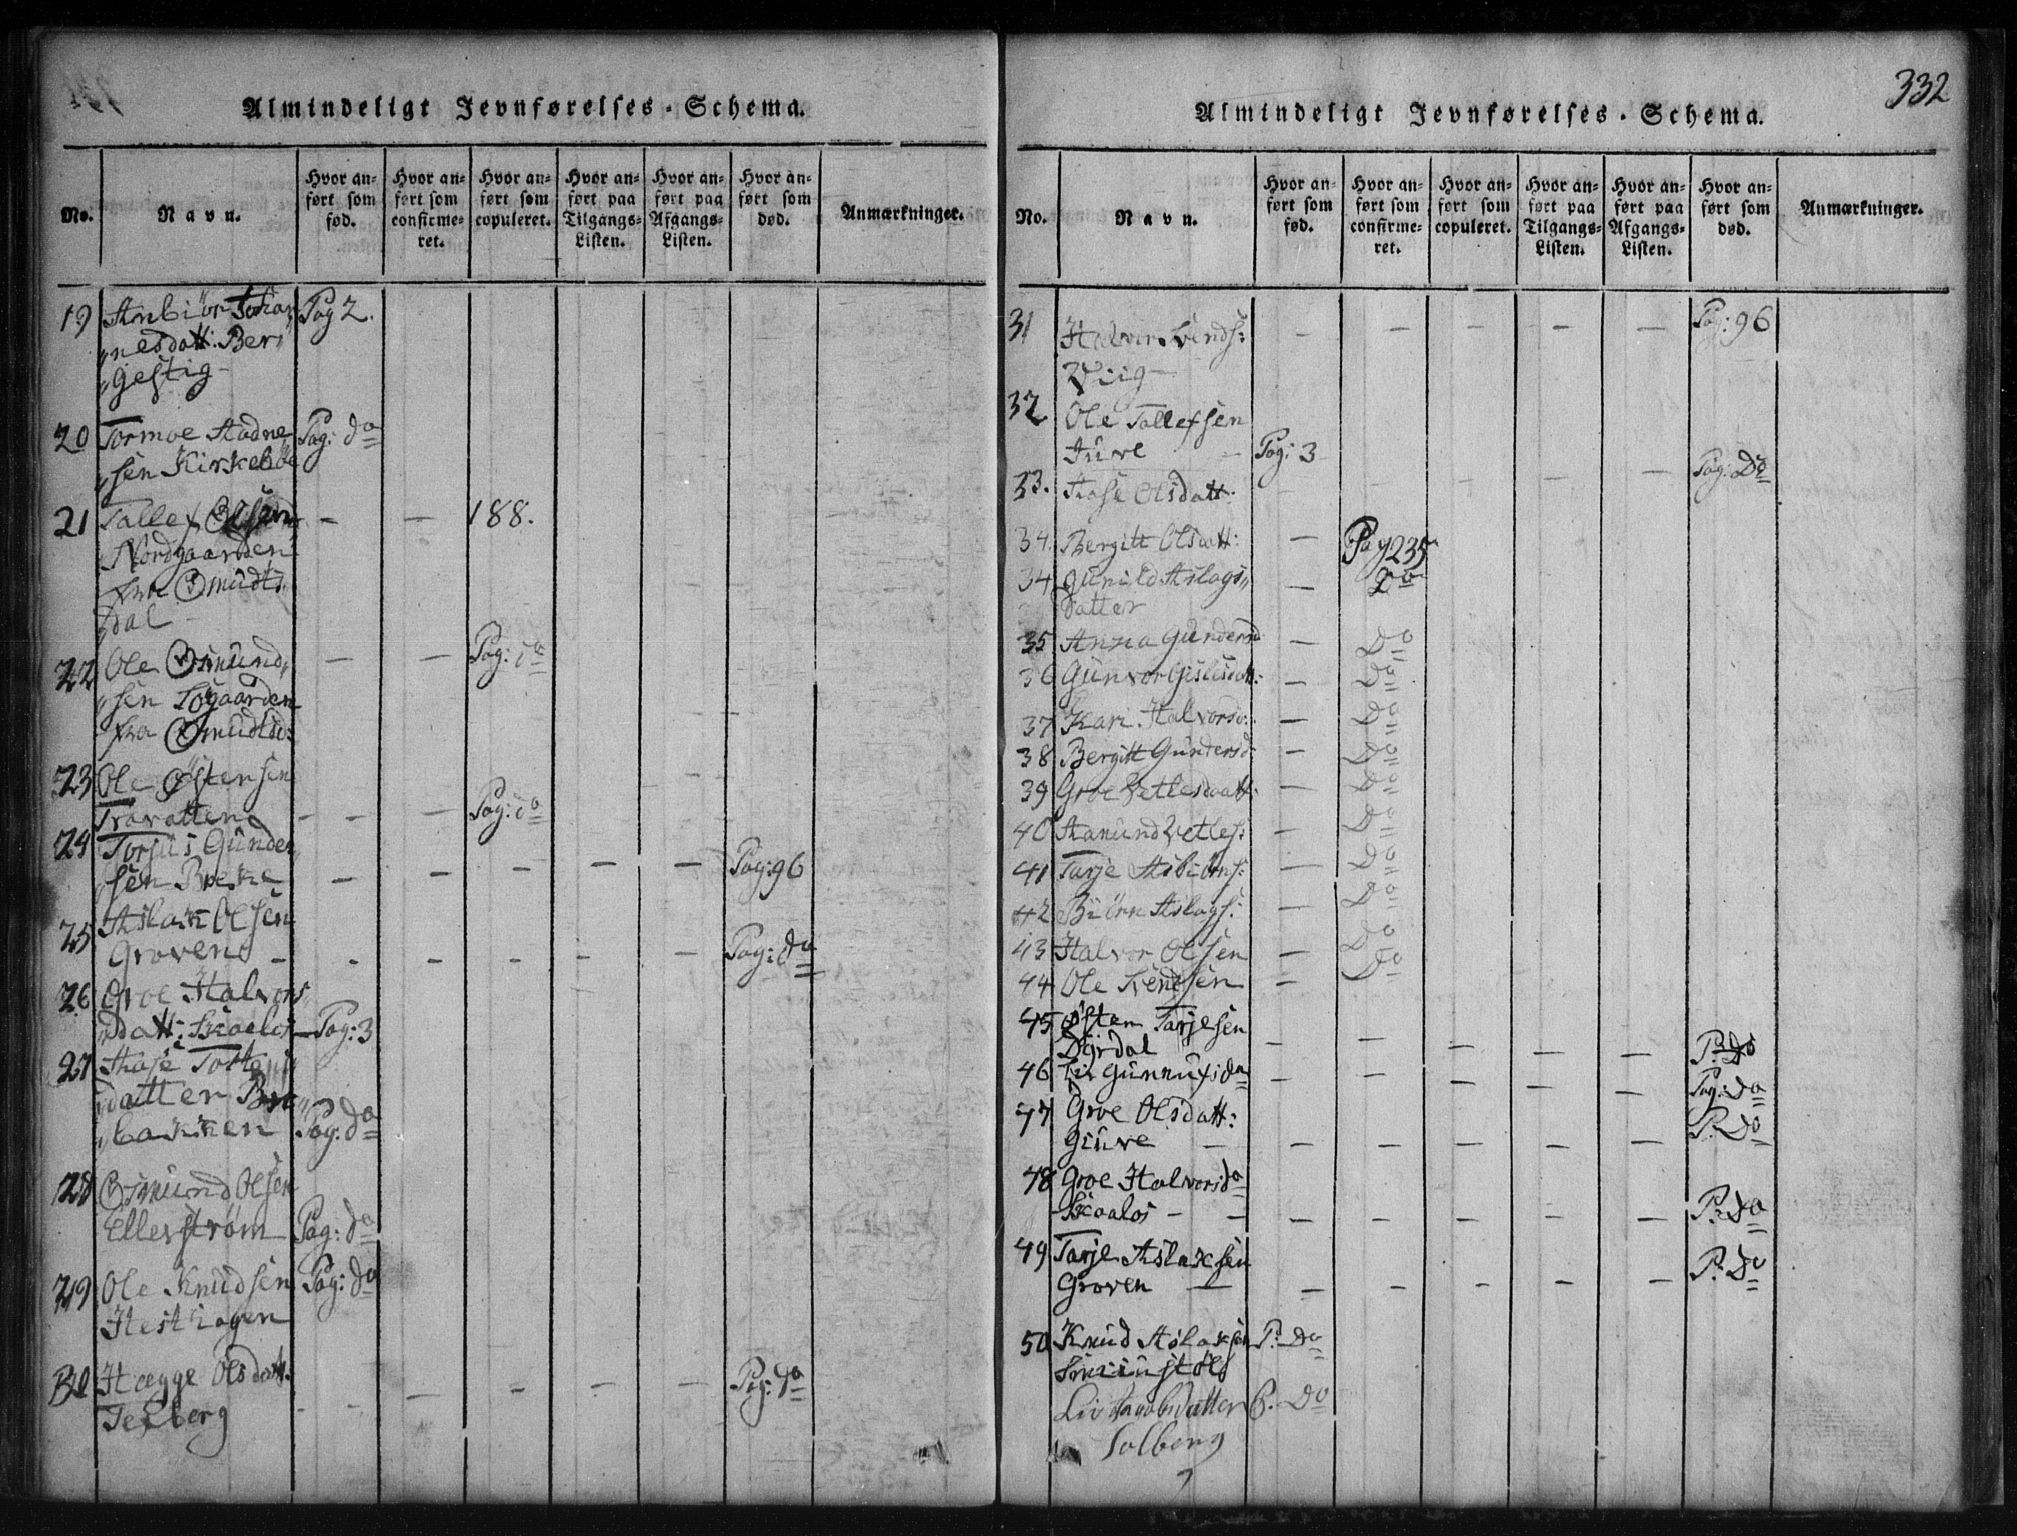 Almindeligt Jevnførelses-Schema.
No.
Navn.
Hvor an-
ført som
fød.
Hvor an-
ført som
confirme-
ret.
Hvor an-
ført som
copuleret.
Hvor an-
ført paa
Tilgangs-
Listen.
Hvor an-
ført paa
Afgangs-
Listen.
Hvor an-
ført som
død.
Anmærkninger.
19 Anbiör Johan Pag 2.
"nesdatt: Ber
"gestig
20 Tormoe Aadne Pag: do
"sen Kirkeböe
21 Tallef Olsen — — 188.
Nordgaarden
fra Omudts
dal
22 Ole Osmund — — Pag: do
"sen Logaarden
fra
23 Ole Østensen
Travatten — — Pag: do
24 Torjus Gunder
"sen Breke — — — — — Pag: 96
25 Aslak Olsen
Groven — — — — — Pag: do
26 Groe Halvors
"datt: Skaalos Pag: 3
27 Aase Totte
datter Bre
"bakken Pag: do
28 Osmund Olsen
Ellefström Pag: do
29 Ole Knudsen Pag: do
Hesthagen
30 Hægge Olsdatt: — — — — — Pag: do
Texberg
332
Almindeligt Jevnførelses-Schema.
No.
Navn.
Hvor an-
ført som
fød.
Hvor an-
ført som
confirme-
ret.
Hvor an-
ført som
copuleret.
Hvor an-
ført paa
Tilgangs-
Listen.
Hvor an-
ført paa
Afgangs-
Listen.
Hvor an-
ført som
død.
Anmærkninger.
31 Halvor Svends: — — — — — Pag: 96
Viig
32 Ole Tallefsen
Jure — Pag: 3
33. Aase Olsdatt: — — — — — Pag: Do
34. Bergitt Olsdatt: — Pag 235
34 Gunild Aslags" — Do
datter
35 Anna Gundersd — Do
36 Gunvor Gislesdatt: — Do
37 Kari Halvorsd: — Do
38 Bergitt Gundersd: — Do
39 Groe Vetlesdatt: — Do
40 Aamund Vetles: — Do
41 Tarje Asbiörns: — Do
42 Biörn Aslags: — Do
43 Halvor Olsen — Do
44 Ole Svendsen — Do
45 Østen Tarjesen
Dyrdal — — — — — P: Do
46 Liv Gunnufsda — — — — — Pag: Do
47 Groe Olsdatt:
Giuve — — — — — — P: Do
48 Groe Halvorsda
Skaalos — — — — — — — P: Do
49 Tarje Aslaksen
Groven — — — — — — P: Do
50 Knud Aslaksen P: Do
Liv Jacobsdatter P. Do
Solberg